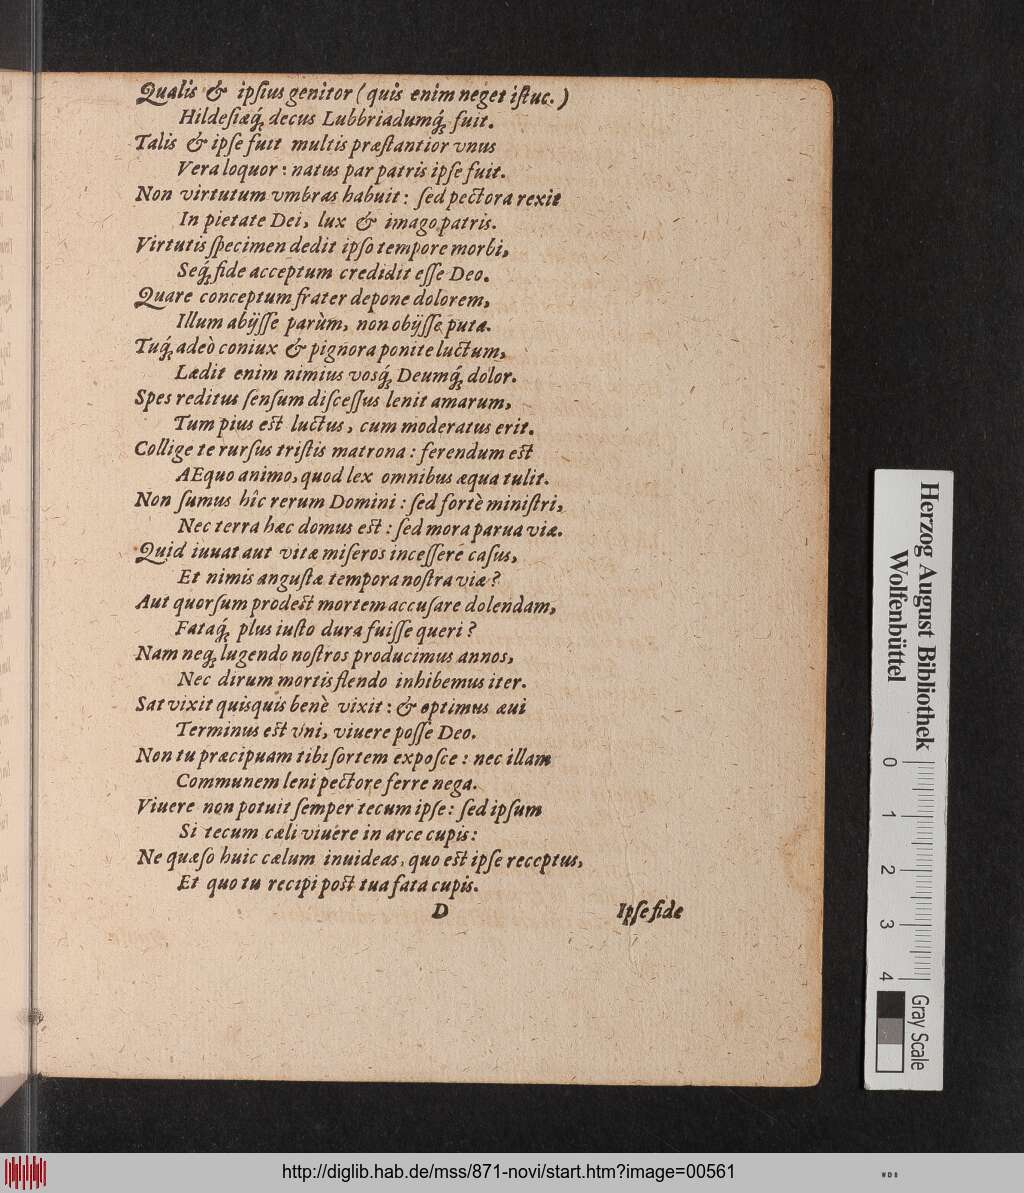 Qualis & ipſius genitor (quis enim neget iſtuc.)
Hildeſiæq́; decus Lubbriadumq́; fuit.
Talis & ipſe fuit multis præſtantior vnus
Vera loquor: natus par patris ipſe fuit.
Non virtutum vmbras habuit: ſed pectora rexit
In pietate Dei, lux & imago patris.
Virtutis ſpecimen dedit ipſo tempore morbi,
Seq́; fide acceptum credidit eſſe Deo.
Quare conceptum frater depone dolorem,
Illum abijſſe parùm, non obijſſe puta.
Tuq́; adeò coniux & pignora ponite luctum,
Lædit enim nimius vosq́; Deumq́; dolor.
Spes reditus ſenſum diſceſſus lenit amarum,
Tum pius eſt luctus, cum moderatus erit.
Collige te rurſus triſtis matrona: ferendum eſt
AEquo animo, quod lex omnibus æqua tulit.
Non ſumus hîc rerum Domini: ſed fortè miniſtri,
Nec terra hæc domus eſt: ſed mora parua viæ.
Quid iuuat aut vitæ miſeros inceſſere caſus,
Et nimis anguſtæ tempora noſtra viæ?
Aut quorſum prodeſt mortem accuſare dolendam,
Fataq́; plus iuſto dura fuiſſe queri?
Nam neq; lugendo noſtros producimus annos,
Nec dirum mortis flendo inhibemus iter.
Sat vixit quisquis benè vixit: & optimus æui
Terminus eſt vni, viuere poſſe Deo.
Non tu præcipuam tibi ſortem expoſce: nec illam
Communem leni pectore ferre nega.
Viuere non potuit ſemper tecum ipſe: ſed ipſum
Si tecum cæli viuere in arce cupis:
Ne quæſo huic cælum inuideas, quo eſt ipſe receptus,
Et quo tu recipi poſt tua fata cupis.
D Ipſe fide
Herzog August Bibliothek
Wolfenbüttel
0 1 2 3 4
Gray Scale
http://diglib.hab.de/mss/871-novi/start.htm?image=00561
WDB